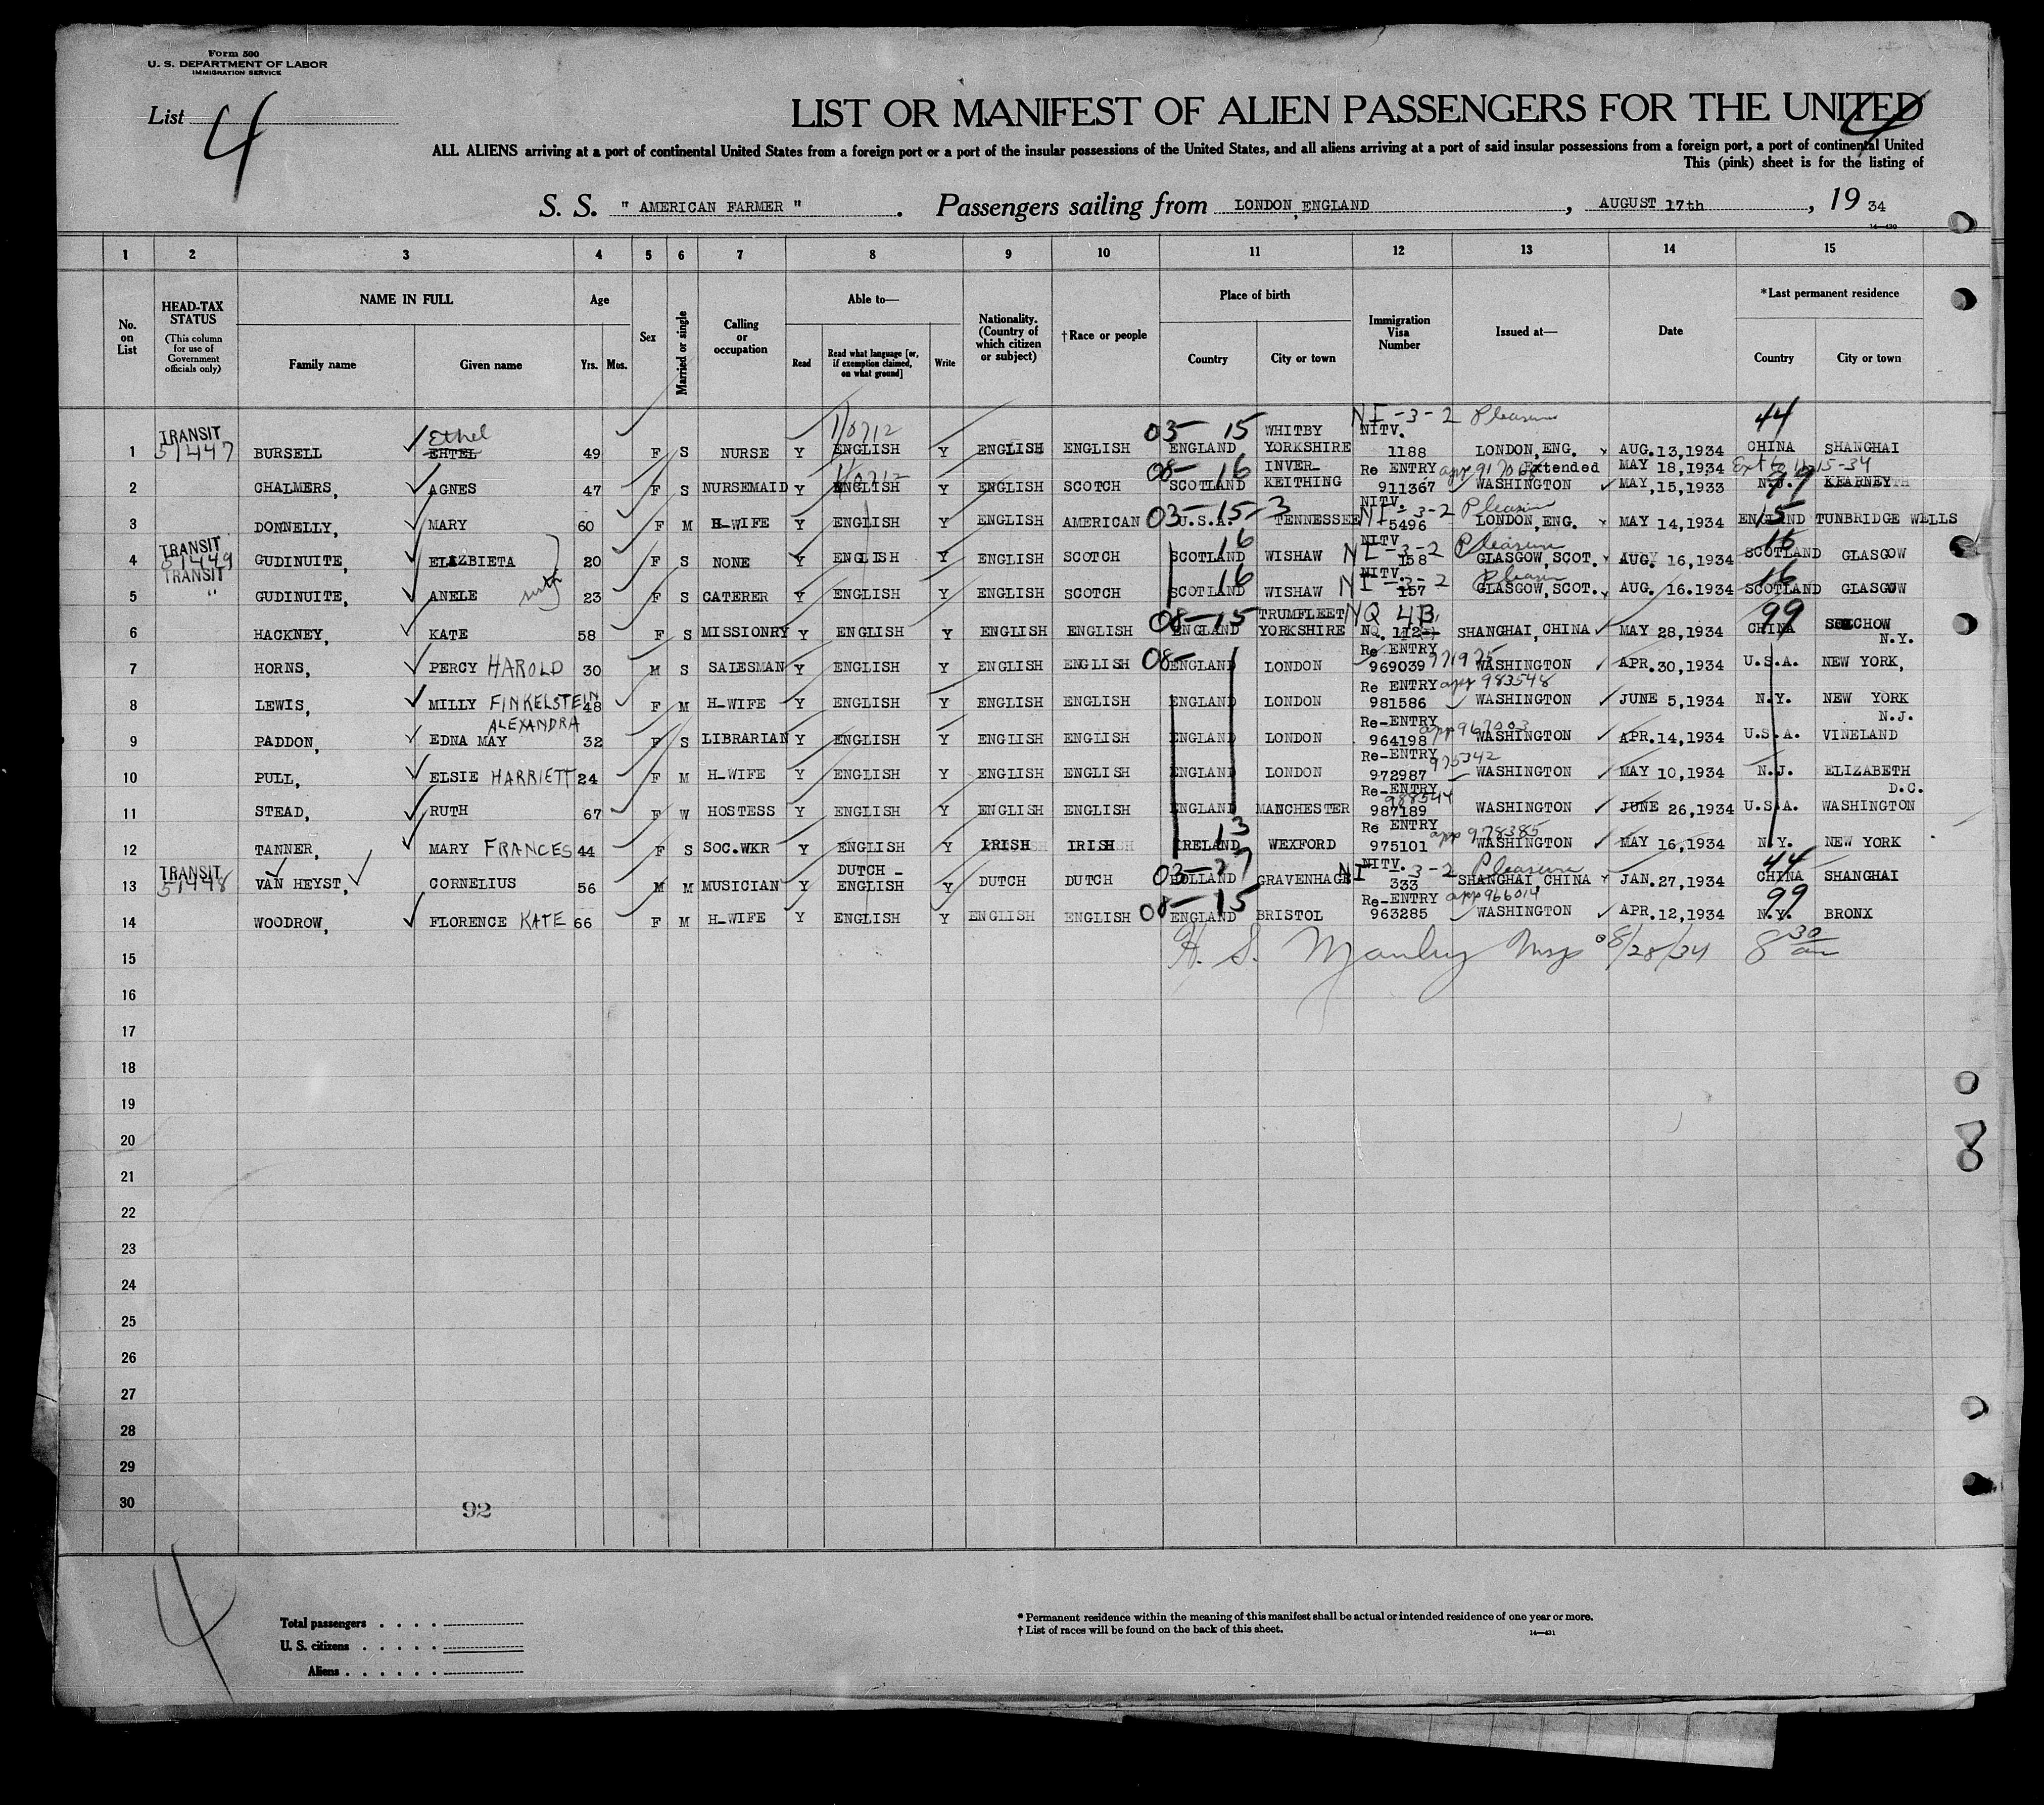 Form 500
U. S. DEPARTMENT OF LABOR
IMMIGRATION SERVICE
List 4
LIST OR MANIFEST OF ALIEN PASSENGERS FOR THE UNITED
4
ALL ALIENS arriving at a port of continental United States from a foreign port or a port of the insular possessions of the United States, and all aliens arriving at a port of said insular possessions from a foreign port, a port of continental United
This (pink) sheet is for the listing of
S. S. " AMERICAN FARMER " . Passengers sailing from LONDON, ENGLAND , AUGUST 17th , 19 34
14—430
1 2 3 4 5 6 7 8 9 10 11 12 13 14 15
No. on List
HEAD-TAX STATUS
(This column for use of Government officials only)
NAME IN FULL
Family name Given name
Age
Yrs. Mos.
Sex
Married or single
Calling or occupation
Able to—
Read
Read what language [or, if exemption claimed, on what ground]
Write
Nationality. (Country of which citizen or subject)
†Race or people
Place of birth
Country City or town
Immigration Visa Number
Issued at—
Date
*Last permanent residence
Country City or town
TRANSIT Ethel 1/0712 03- 15 WHITBY NI-3-2 Pleasure NITV. 44
1 51447 BURSELL EHTEL 49 F S NURSE Y ENGLISH Y ENGLISH ENGLISH ENGLAND YORKSHIRE 1188 LONDON, ENG. AUG.13,1934 CHINA SHANGHAI
1/0712 08- 16 INVER- Re ENTRY Extended MAY 18,1934 Ext to 11-15-34
2 CHALMERS, AGNES 47 F S NURSEMAID Y ENGLISH Y ENGLISH SCOTCH SCOTLAND KEITHING 911367 WASHINGTON MAY,15,1933 N.J. 99 KEARNEY
NITV. NI-3-2 Pleasure
3 DONNELLY, MARY 60 F M H-WIFE Y ENGLISH Y ENGLISH AMERICAN 03 U.S.A. -15-3 TENNESSEE 5496 LONDON, ENG. MAY 14,1934 ENGLAND 15 TUNBRIDGE WELLS
TRANSIT 16 NITV NI-3-2 Pleasure 16
4 51449 GUDINUITE, ELIZBIETA 20 F S NONE Y ENGLISH Y ENGLISH SCOTCH SCOTLAND WISHAW 158 GLASGOW, SCOT. AUG. 16,1934 SCOTLAND GLASGOW
TRANSIT 16 NITV. NI-3-2 Pleasure 16
5 " GUDINUITE, ANELE 23 F S CATERER Y ENGLISH Y ENGLISH SCOTCH SCOTLAND WISHAW 157 GLASGOW, SCOT. AUG. 16.1934 SCOTLAND GLASGOW
08-15 TRUMFLEET NQ 4B, 99
6 HACKNEY, KATE 58 F S MISSIONRY Y ENGLISH Y ENGLISH ENGLISH ENGLAND YORKSHIRE NQ. 112 SHANGHAI, CHINA MAY 28,1934 CHINA
08- Re ENTRY 971975 N.Y.
7 HORNS, PERCY HAROLD 30 M S SALESMAN Y ENGLISH Y ENGLISH ENGLISH ENGLAND LONDON 969039 WASHINGTON APR.30,1934 U.S.A. NEW YORK,
Re ENTRY app 983548
8 LEWIS, MILLY FINKELSTEIN 48 F M H-WIFE Y ENGLISH Y ENGLISH ENGLISH ENGLAND LONDON 981586 WASHINGTON JUNE 5,1934 N.Y. NEW YORK
ALEXANDRA Re-ENTRY app 967003 N.J.
9 PADDON, EDNA MAY 32 F S LIBRARIAN Y ENGLISH Y ENGLISH ENGLISH ENGLAND LONDON 964198 WASHINGTON APR.14,1934 U.S.A. VINELAND
Re-ENTRY 975342
10 PULL, ELSIE HARRIETT 24 F M H-WIFE Y ENGLISH Y ENGLISH ENGLISH ENGLAND LONDON 972987 WASHINGTON MAY 10,1934 N.J. ELIZABETH
Re-ENTRY 988544 D.C.
11 STEAD, RUTH 67 F W HOSTESS Y ENGLISH Y ENGLISH ENGLISH ENGLAND MANCHESTER 987189 WASHINGTON JUNE 26,1934 U.S.A. WASHINGTON
13 Re ENTRY app 978385
12 TANNER, MARY FRANCES 44 F S SOC.WKR Y ENGLISH Y IRISH IRISH IRELAND WEXFORD 975101 WASHINGTON MAY 16,1934 N.Y. NEW YORK
TRANSIT DUTCH - 03-27 NITV. NI-3-2 Pleasure 44
13 51448 VAN HEYST, CORNELIUS 56 M M MUSICIAN Y ENGLISH Y DUTCH DUTCH HOLLAND GRAVENHAGE 333 SHANGHAI, CHINA JAN.27,1934 CHINA SHANGHAI
08-15 Re-ENTRY app 966014 99
14 WOODROW, FLORENCE KATE 66 F M H-WIFE Y ENGLISH Y ENGLISH ENGLISH ENGLAND BRISTOL 963285 WASHINGTON APR.12,1934 N.Y. BRONX
15 H. S. Manley Insp 8/28/34 8 30 am
16
17
18
19
20
21
22
23
24
25
26
27
28
29
30
92
4
Total passengers . . . .
U. S. citizens . . . . .
Aliens . . . . . .
* Permanent residence within the meaning of this manifest shall be actual or intended residence of one year or more.
† List of races will be found on the back of this sheet.
14—431